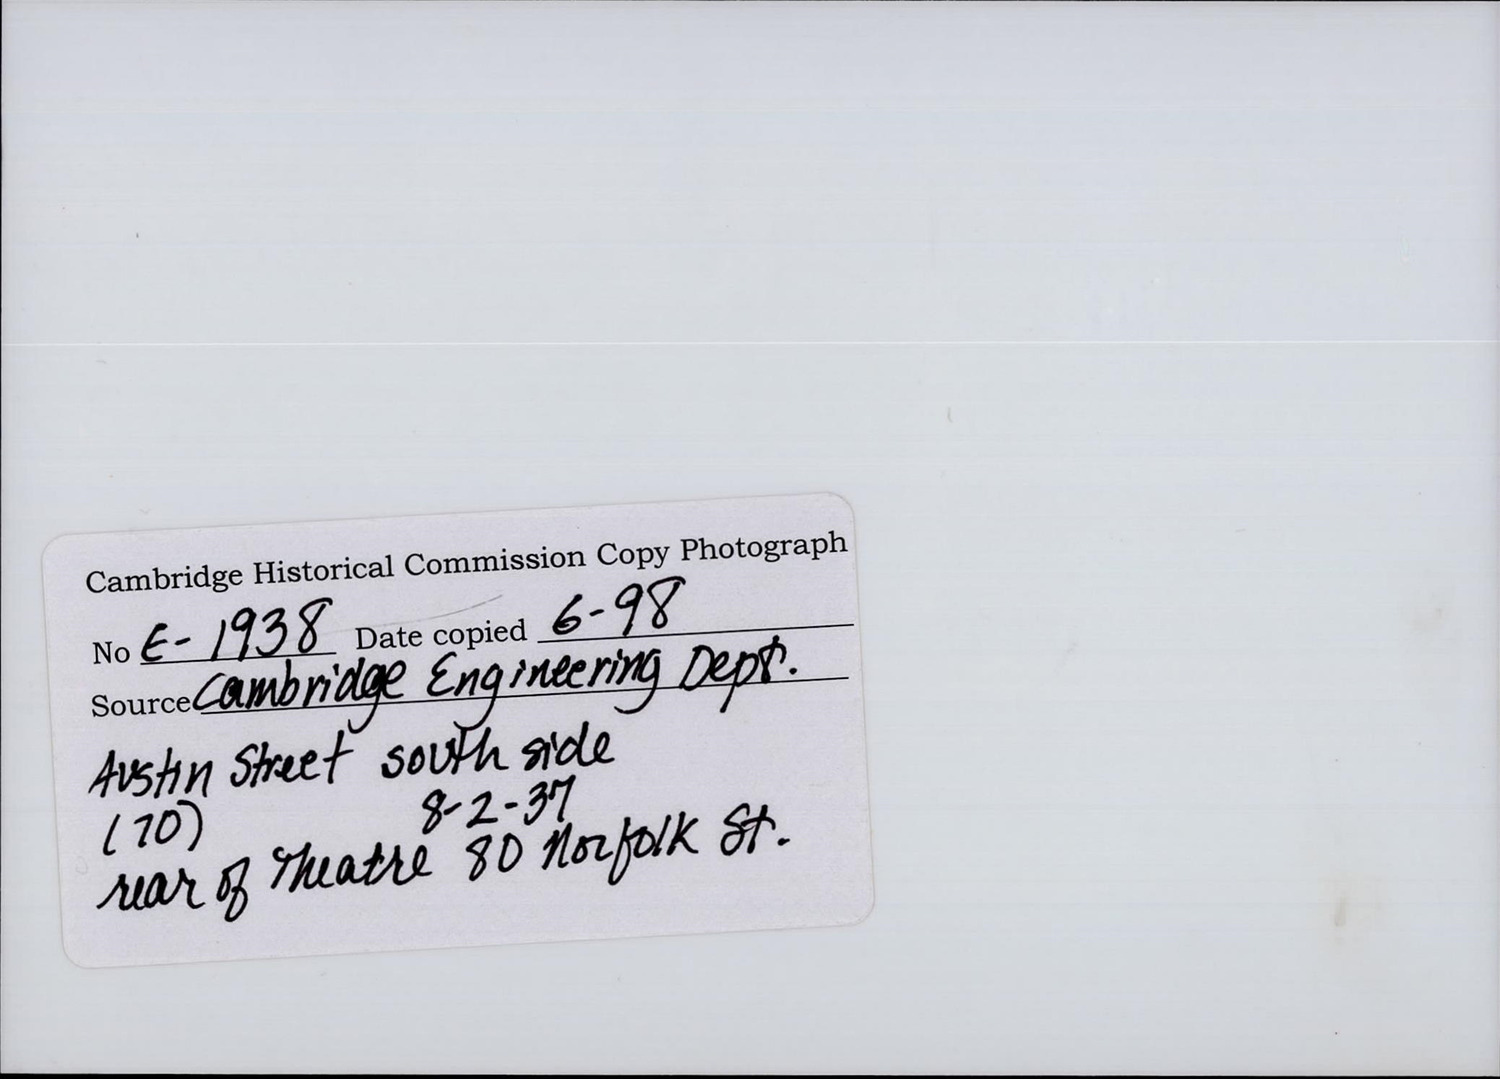 Cambridge Historical Commission Copy Photograph
No E-1938 Date copied 6-98
Source Cambridge Engineering Dept.
Austin Street south side
(70) 8-2-37
rear of Theatre 80 Norfolk St.